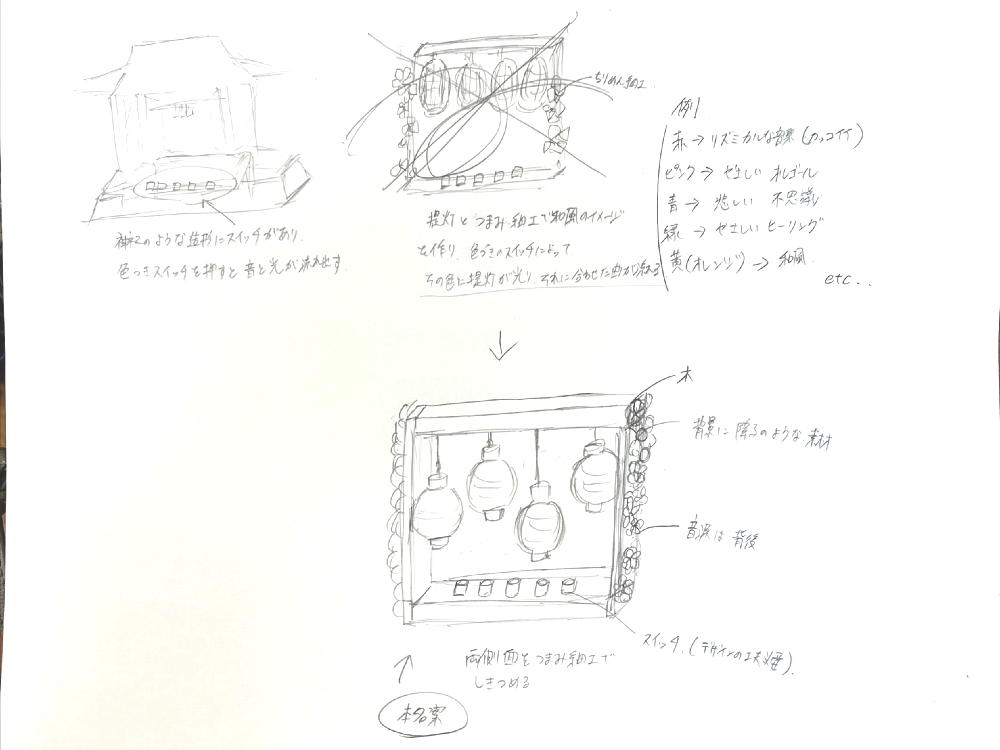 神社のような造形にスイッチがあり、
色つきスイッチを押すと音と光が流れ出す。
ちりめん細工
提灯とつまみ細工で和風のイメージ
を作り、色つきのスイッチによって
その色に提灯が光り、それに合わせた曲が流れる
例
赤→リズミカルな音楽(カッコイイ)
ピンク→やさしい オルゴール
青→悲しい 不思議
緑→やさしい ヒーリング
黄(オレンジ)→和風
etc..
↓
木
背景に障子のような素材
音源は背後
スイッチ.(デザインの工夫必要).
両側面をつまみ細工で
しきつめる
↑
本名案